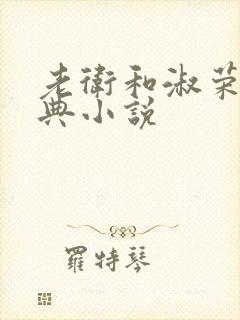 老衛和淑荣
典小説
羅特琴